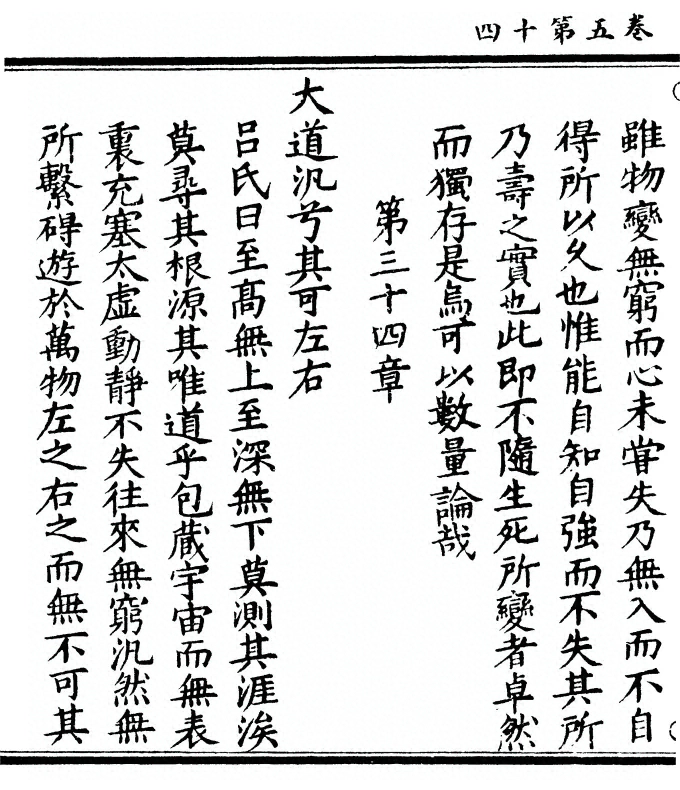 卷五第十四
雖物變無窮而心未甞失乃無入而不自
得所以久也惟能自知自強而不失其所
乃壽之實也此即不隨生死所變者卓然
而獨存是烏可以數量論哉
第三十四章
大道汎兮其可左右
吕氏曰至髙無上至深無下莫測其涯涘
莫尋其根源其唯道乎包蔵宇宙而無表
裏充塞太虚動靜不失往來無窮汎然無
所繫碍遊於萬物左之右之而無不可其